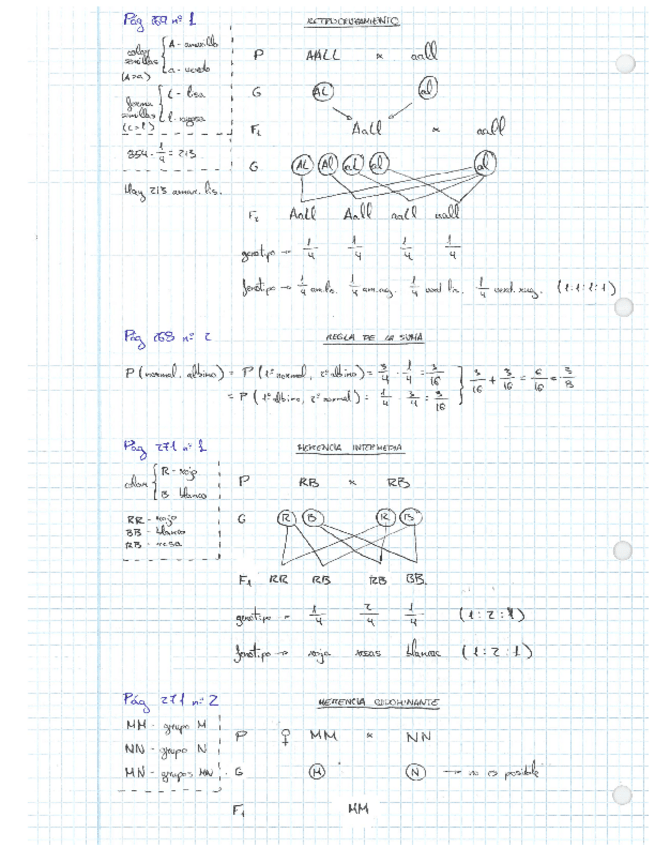 Pág 269 nº 1
RETROCRUZAMIENTO
color semillas (A>a) { A - amarillo
a - verde
P AALL × aall
forma semillas (L>l) { L - lisa
l - rugosa
G AL al
F₁ AaLl × aall
854 · 1/4 = 213
G AL Al aL al al
Hay 213 amar. lis.
F₂ AaLl Aall aaLl aall
genotipo → 1/4 1/4 1/4 1/4
fenotipo → 1/4 am.lis. 1/4 am.rug. 1/4 verd.lis. 1/4 verd.rug. (1:1:1:1)
Pág 268 nº 2
REGLA DE LA SUMA
P (normal, albino) = P (1º normal, 2º albino) = 3/4 · 1/4 = 3/16
= P (1º albino, 2º normal) = 1/4 · 3/4 = 3/16 } 3/16 + 3/16 = 6/16 = 3/8
Pág 271 nº 1
HERENCIA INTERMEDIA
color { R - rojo
B blanco
P RB × RB
RR - rojo
BB - blanco
RB - rosa
G R B R B
F₁ RR RB RB BB.
genotipo → 1/4 2/4 1/4 (1:2:1)
fenotipo → roja rosas blancas (1:2:1)
Pág 271 nº 2
HERENCIA CODOMINANTE
MM - grupo M
NN - grupo N
MN - grupos MN
P ♀ MM × NN
G M N → no es posible
F₁ MM